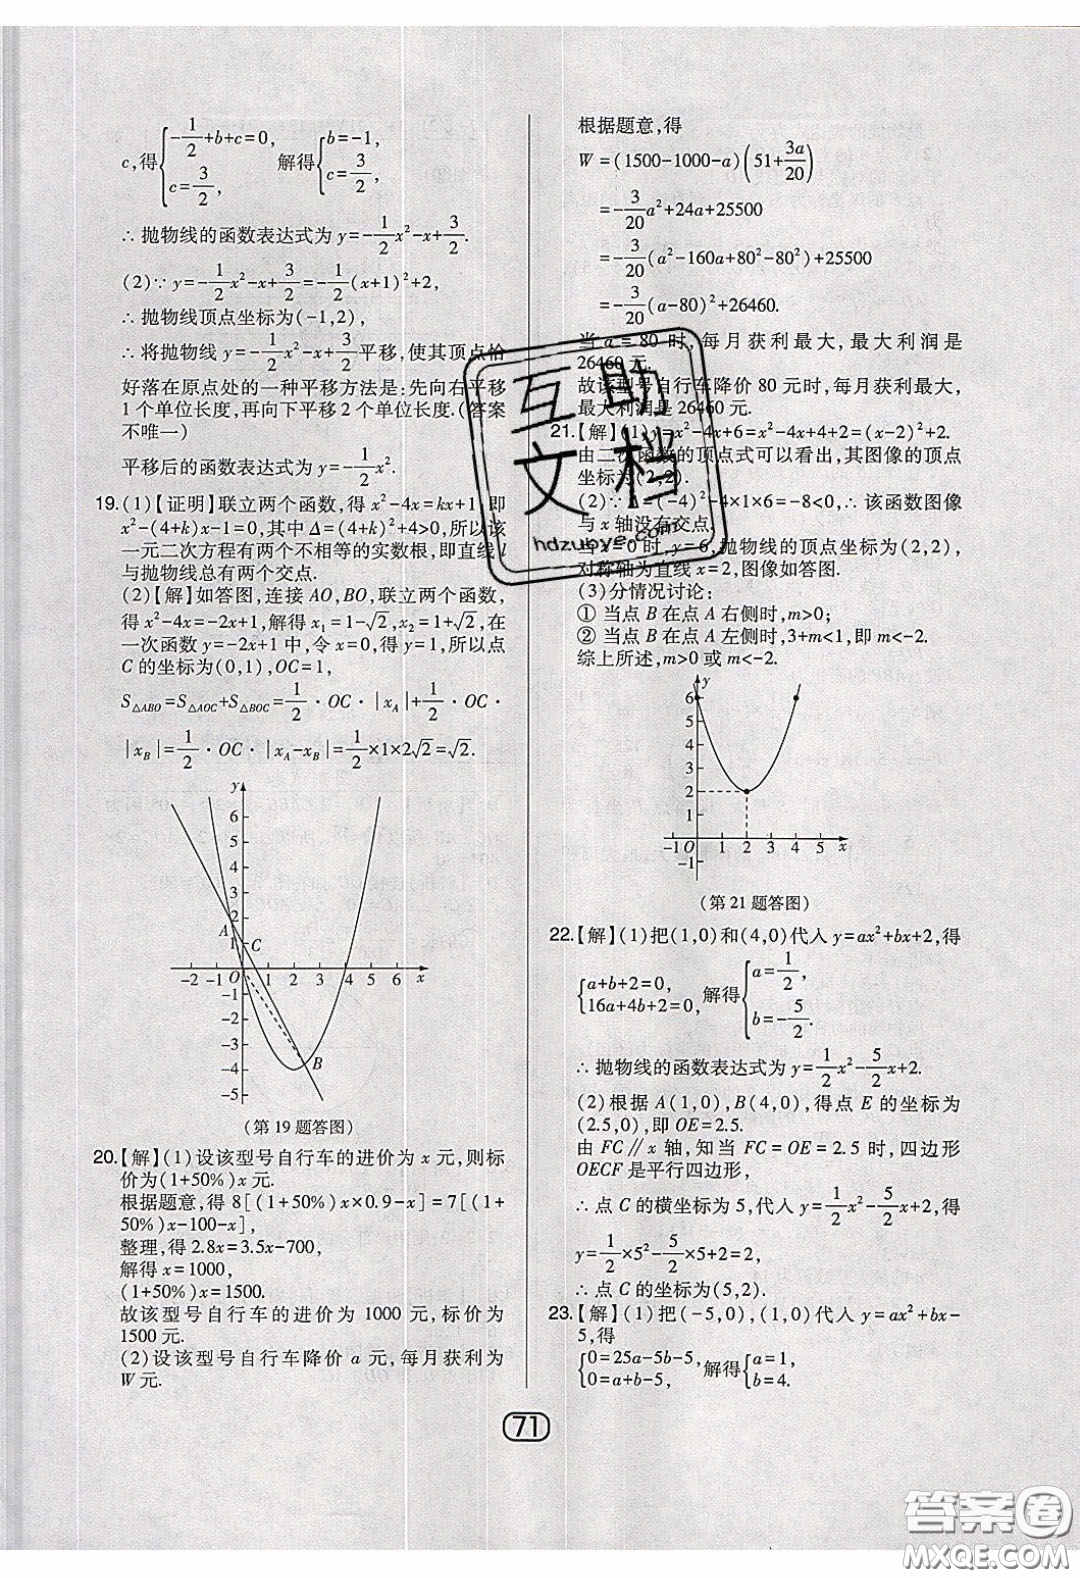 c,得{-1/2+b+c=0, c=3/2, 解得{b=-1, c=3/2,
∴ 抛物线的函数表达式为 y=-1/2x²-x+3/2.
(2)∵ y=-1/2x²-x+3/2=-1/2(x+1)²+2,
∴ 抛物线顶点坐标为(-1,2),
∴ 将抛物线 y=-1/2x²-x+3/2平移,使其顶点恰
好落在原点处的一种平移方法是:先向右平移
1个单位长度,再向下平移2个单位长度.(答案
不唯一)
平移后的函数表达式为 y=-1/2x².
19.(1)【证明】联立两个函数,得 x²-4x=kx+1,即
x²-(4+k)x-1=0,其中 Δ=(4+k)²+4>0,所以该
一元二次方程有两个不相等的实数根,即直线 l
与抛物线总有两个交点.
(2)【解】如答图,连接 AO,BO,联立两个函数,
得 x²-4x=-2x+1,解得 x₁=1-√2,x₂=1+√2,在
一次函数 y=-2x+1 中,令 x=0,得 y=1,所以点
C 的坐标为(0,1),OC=1,
S△ABO=S△AOC+S△BOC=1/2·OC·|xA|+1/2·OC·
|xB|=1/2·OC·|xA-xB|=1/2×1×2√2=√2.
y
6
5
4
3
2
A
1
C
-2 -1 O 1 2 3 4 5 6 x
-1
-2
-3
-4
B
-5
(第 19 题答图)
20.【解】(1)设该型号自行车的进价为 x 元,则标
价为(1+50%)x 元.
根据题意,得 8[(1+50%)x×0.9-x]=7[(1+
50%)x-100-x],
整理,得 2.8x=3.5x-700,
解得 x=1000,
(1+50%)x=1500.
故该型号自行车的进价为 1000 元,标价为
1500 元.
(2)设该型号自行车降价 a 元,每月获利为
W 元.
根据题意,得
W=(1500-1000-a)(51+3a/20)
=-3/20a²+24a+25500
=-3/20(a²-160a+80²-80²)+25500
=-3/20(a-80)²+26460.
当 a=80 时,每月获利最大,最大利润是
26460 元.
故该型号自行车降价 80 元时,每月获利最大,
最大利润是 26460 元.
21.【解】(1)y=x²-4x+6=x²-4x+4+2=(x-2)²+2.
由二次函数的顶点式可以看出,其图像的顶点
坐标为(2,2).
(2)∵ Δ=(-4)²-4×1×6=-8<0,∴ 该函数图像
与 x 轴没有交点.
当 x=0 时,y=6,抛物线的顶点坐标为(2,2),
对称轴为直线 x=2,图像如答图.
(3)分情况讨论:
① 当点 B 在点 A 右侧时,m>0;
② 当点 B 在点 A 左侧时,3+m<1,即 m<-2.
综上所述,m>0 或 m<-2.
y
6
5
4
3
2
1
-1 O 1 2 3 4 5 x
-1
(第 21 题答图)
22.【解】(1)把(1,0)和(4,0)代入 y=ax²+bx+2,得
{a+b+2=0, 16a+4b+2=0, 解得{a=1/2, b=-5/2.
∴ 抛物线的函数表达式为 y=1/2x²-5/2x+2.
(2)根据 A(1,0),B(4,0),得点 E 的坐标为
(2.5,0),即 OE=2.5.
由 FC∥x 轴,知当 FC=OE=2.5 时,四边形
OECF 是平行四边形,
∴ 点 C 的横坐标为 5,代入 y=1/2x²-5/2x+2,得
y=1/2×5²-5/2×5+2=2,
∴ 点 C 的坐标为(5,2).
23.【解】(1)把(-5,0),(1,0)代入 y=ax²+bx-
5,得
{0=25a-5b-5, 0=a+b-5, 解得{a=1, b=4.
71
互助
文档
hdzuoye.com
答案圈
MXQE.COM